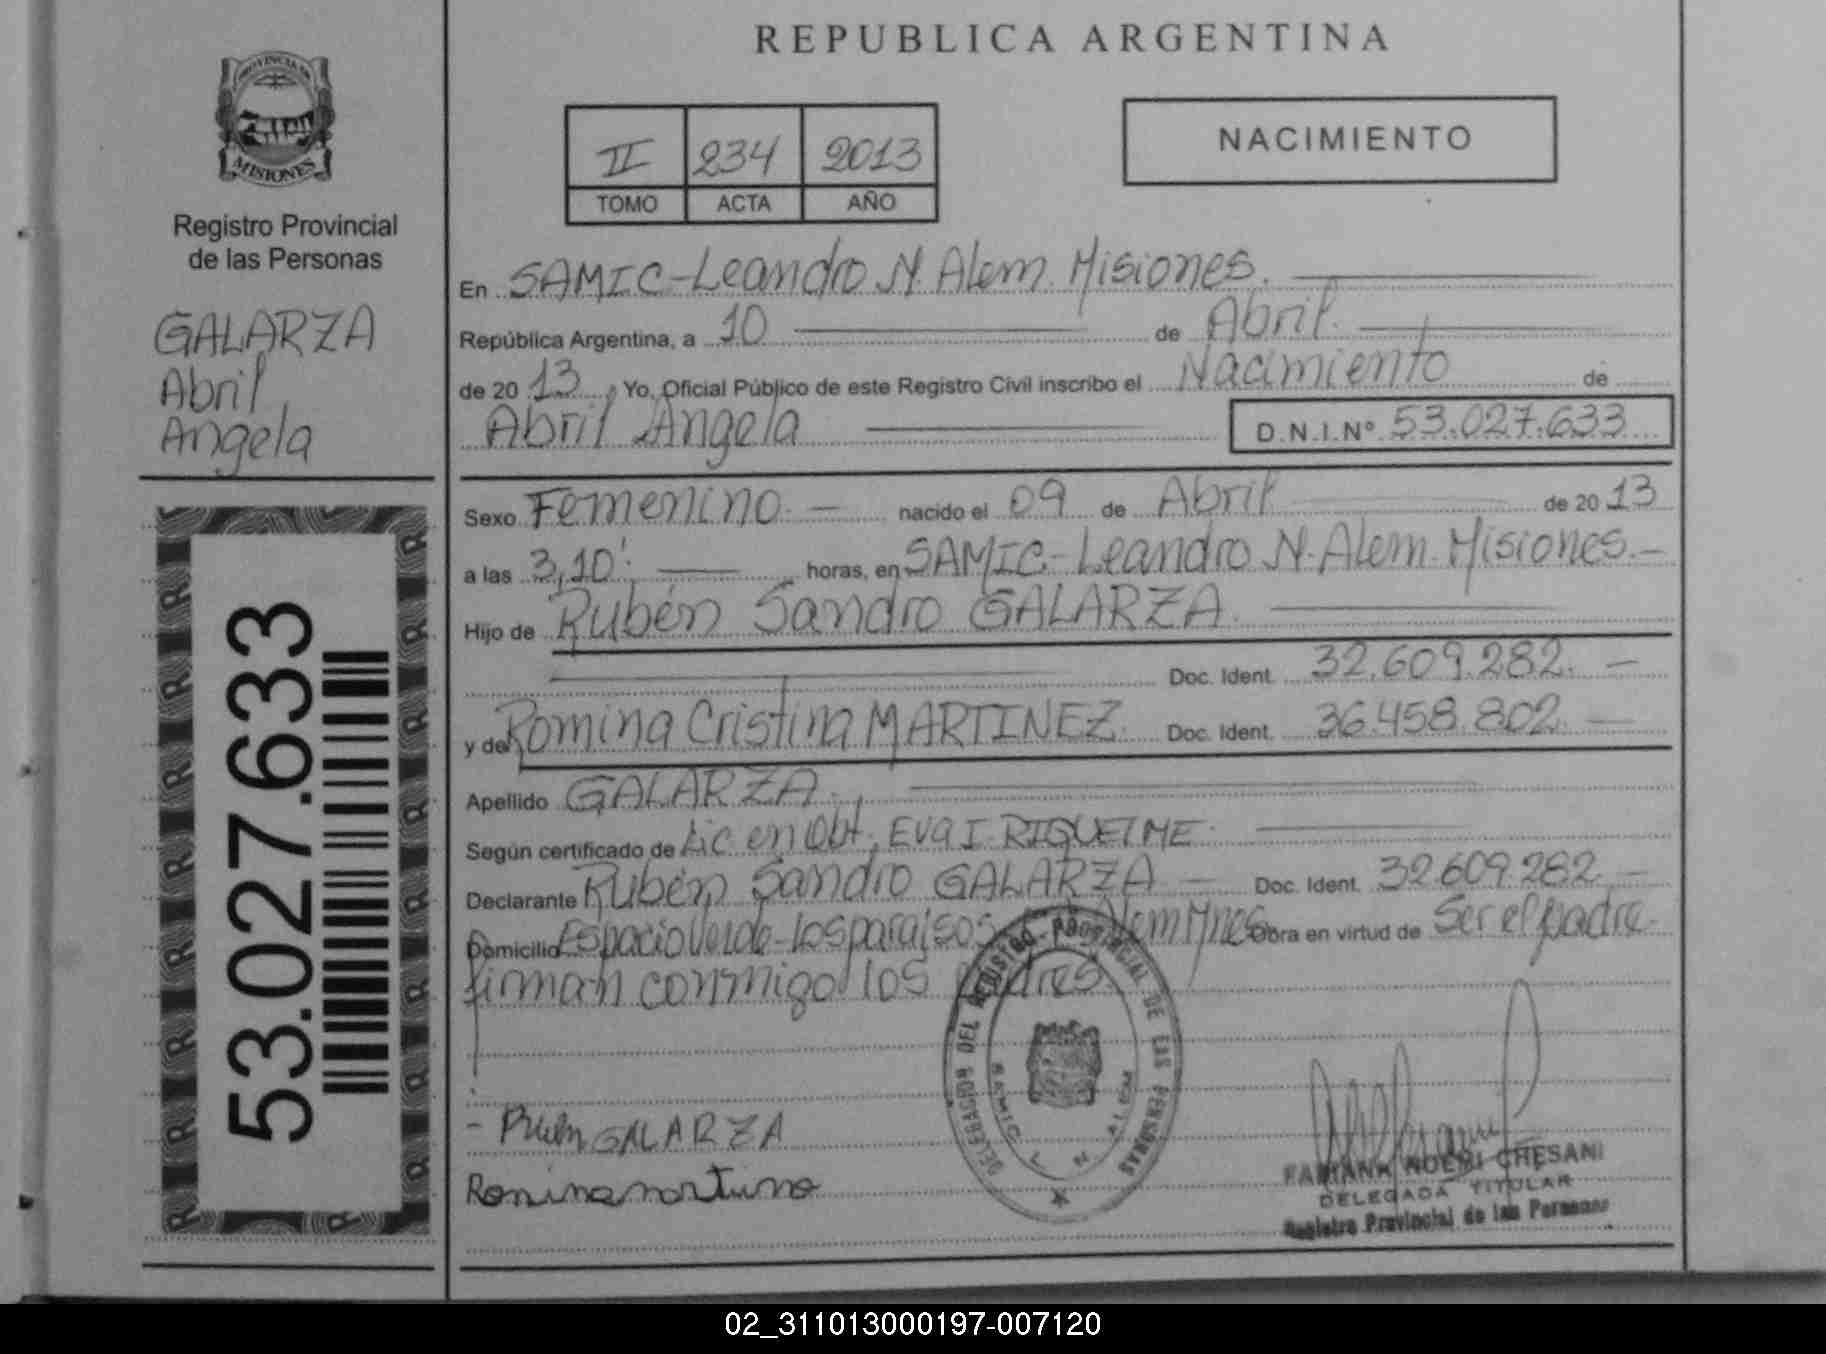 REPUBLICA ARGENTINA
PROVINCIA DE
MISIONES
Registro Provincial
de las Personas
GALARZA
Abril
Angela
53.027.633
II 234 2013
TOMO ACTA AÑO
NACIMIENTO
En SAMIC-Leandro N. Alem. Misiones.
República Argentina, a 10 de Abril.
de 20 13, Yo, Oficial Público de este Registro Civil inscribo el Nacimiento de
Abril Angela D.N.I.Nº 53.027.633
Sexo Femenino. nacido el 09 de Abril de 20 13
a las 3,10' horas, en SAMIC-Leandro N. Alem. Misiones.-
Hijo de Rubén Sandro GALARZA.
Doc. Ident. 32.609.282. -
y de Romina Cristina MARTINEZ. Doc. Ident. 36.458.802. -
Apellido GALARZA.
Según certificado de Lic en Obt. Eva I. RIQUELME.
Declarante Rubén Sandro GALARZA - Doc. Ident. 32.609.282. -
Domicilio Espacio Verde-los paraisos Alem Mnes Obra en virtud de Ser el padre.
firman conmigo los padres
DELEGACION DEL REGISTRO PROVINCIAL DE LAS PERSONAS
SAMIC L. N. ALEM
- Rubén GALARZA
Romina
FABIANA NOEMI CHESANI
DELEGADA TITULAR
Registro Provincial de las Personas
02_311013000197-007120